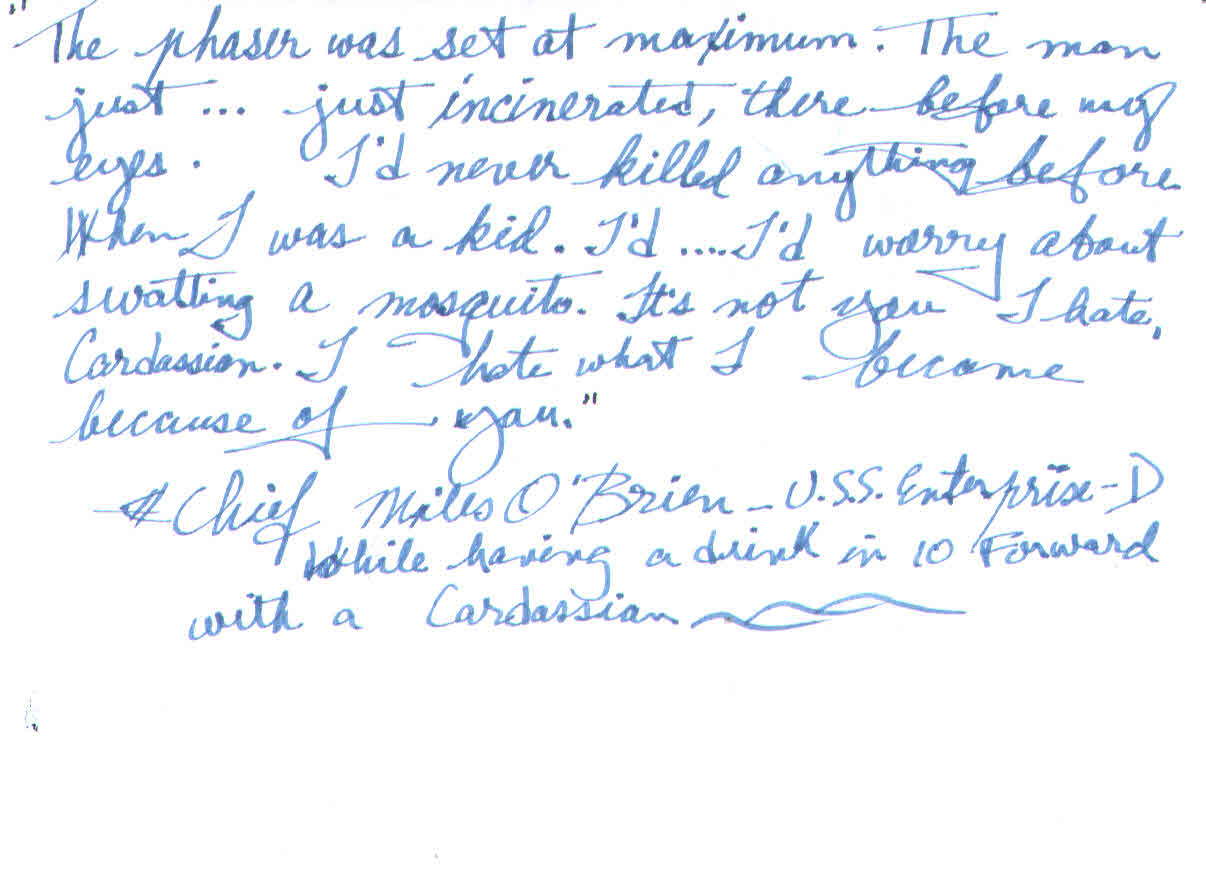 "The phaser was set at maximum. The man
just ... just incinerated, there before my
eyes. I'd never killed anything before.
When I was a kid. I'd .... I'd worry about
swatting a mosquito. It's not you I hate,
Cardassian. I hate what I became
because of you."
Chief Miles O'Brien - U.S.S. Enterprise-D
While having a drink in 10 Forward
with a Cardassian